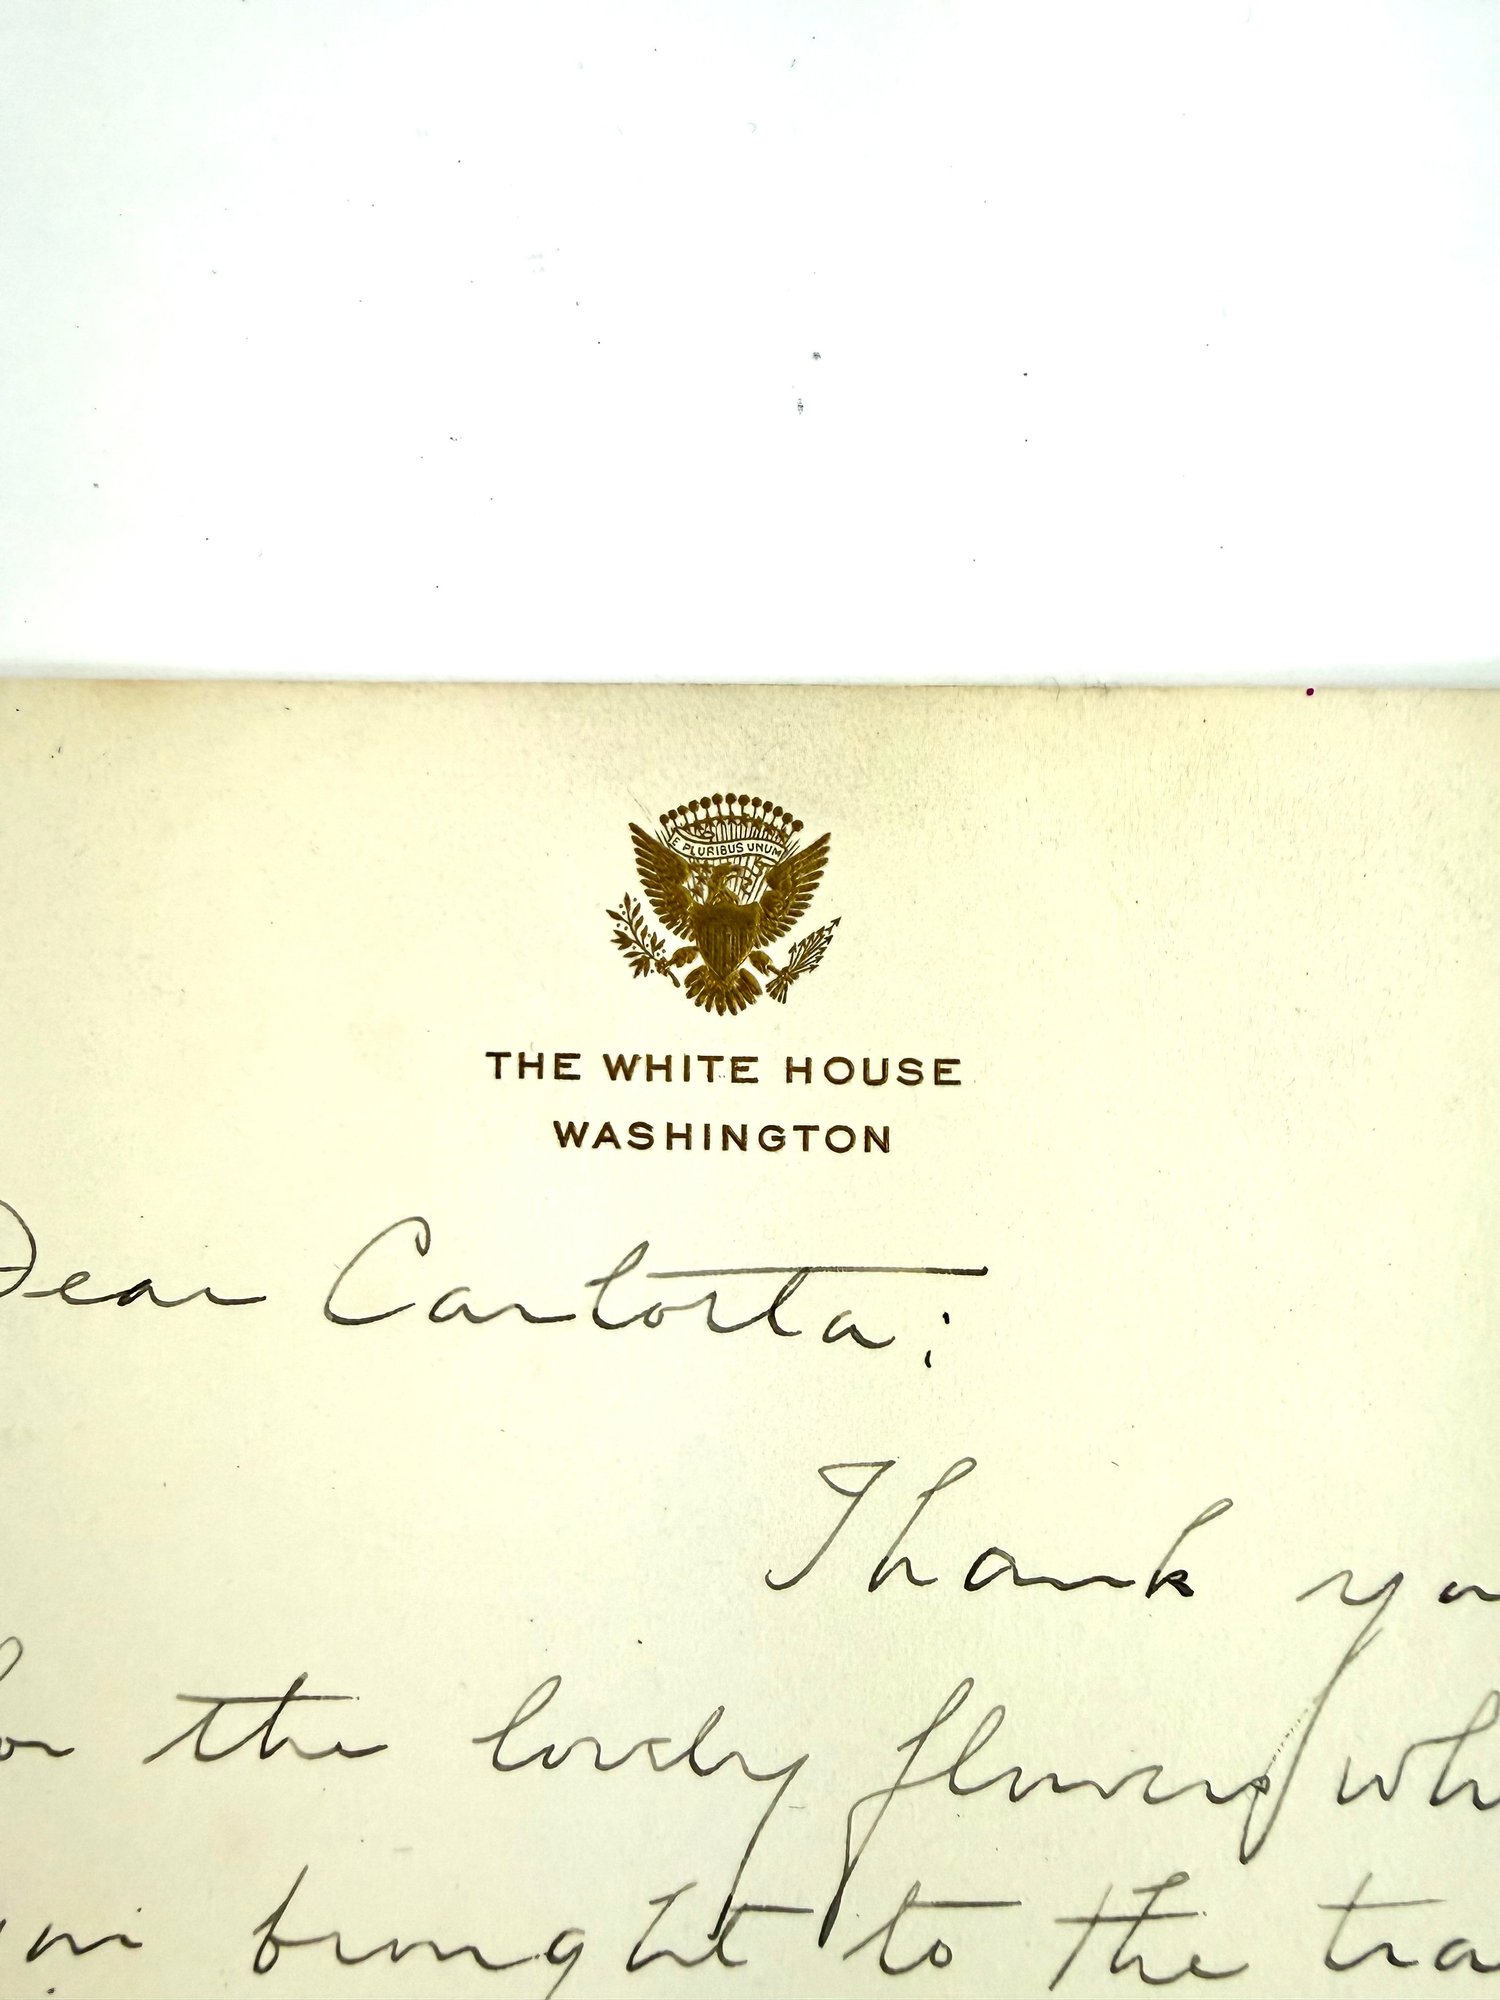 E PLURIBUS UNUM
THE WHITE HOUSE
WASHINGTON
Dear Cartorta:
Thank yo
or the lovely flowers wh
brought to the tra